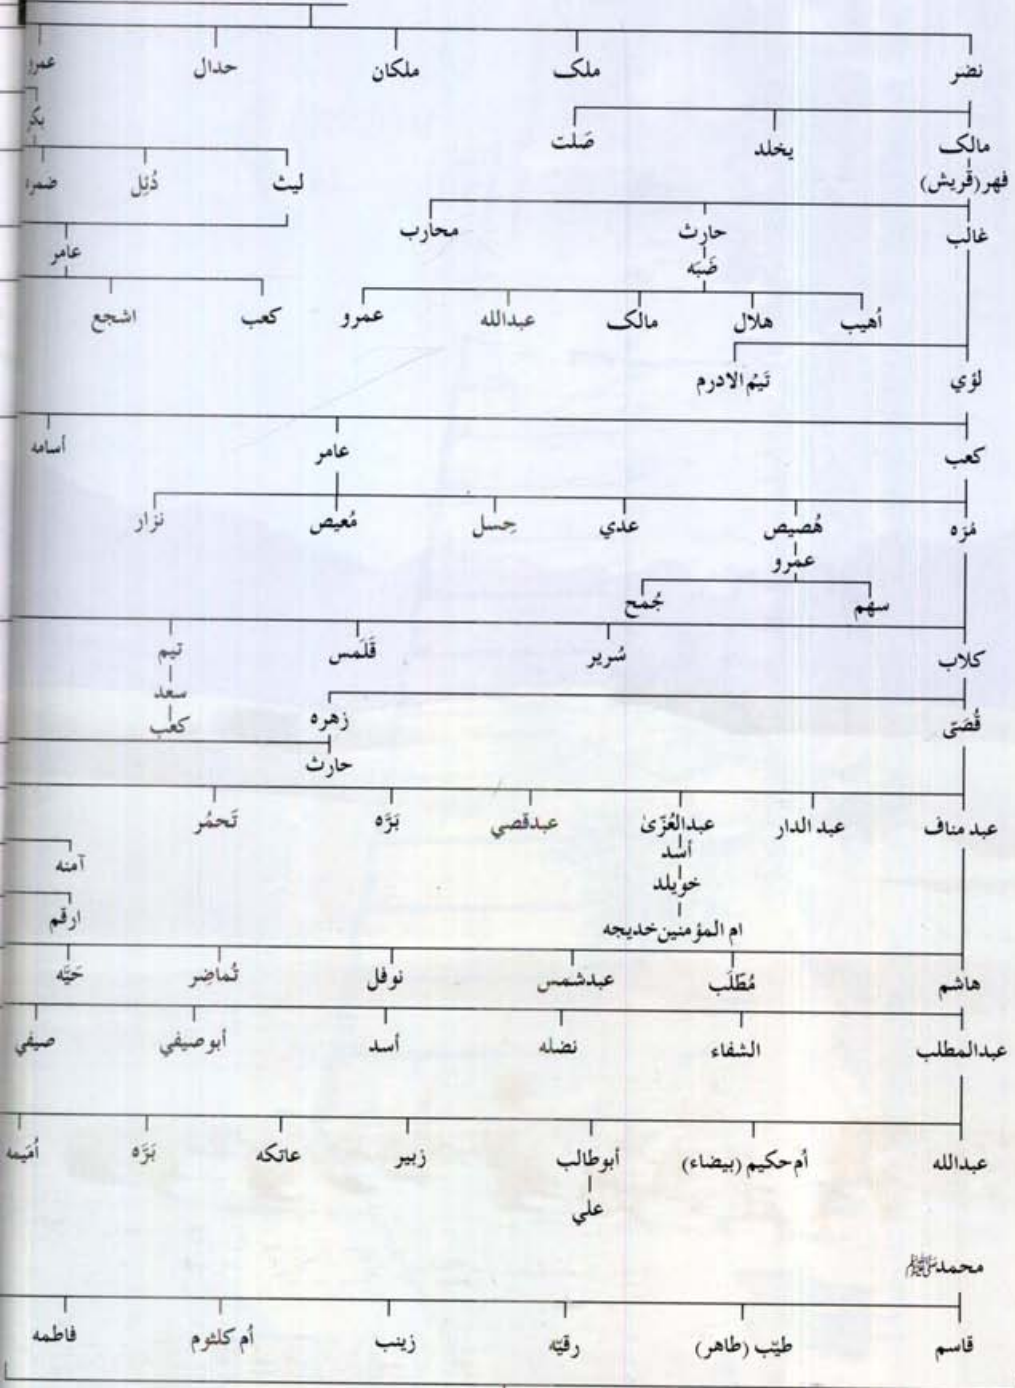 نضر ملک ملکان حدال عمرو
مالک یخلد صَلت بکر
فهر(قریش) لیث دُئِل ضمره
غالب حارث محارب عامر
ضَبّه
أهیب هلال مالک عبدالله عمرو کعب اشجع
لؤي تَیمُ الادرم
کعب عامر أسامه
مُرّه هُصیص عدي حِسل مُعیص نزار
عمرو
سهم جُمح
کلاب سُریر قَلَمس تیم
سعد
قُصَیّ زهره کعب
حارث
عبد مناف عبد الدار عبدالعُزّیٰ عبدقصي بَرَّه تَحمُر
أسد آمنه
خویلد
ام المؤمنین خدیجه ارقم
هاشم مُطّلَب عبدشمس نوفل تُماضِر حَیَّه
عبدالمطلب الشفاء نضله أسد أبوصیفي صیفي
عبدالله أم‌حکیم (بیضاء) أبوطالب زبیر عاتکه بَرَّه اُمَیمه
علي
محمدﷺ
قاسم طیّب (طاهر) رقیّه زینب أم کلثوم فاطمه